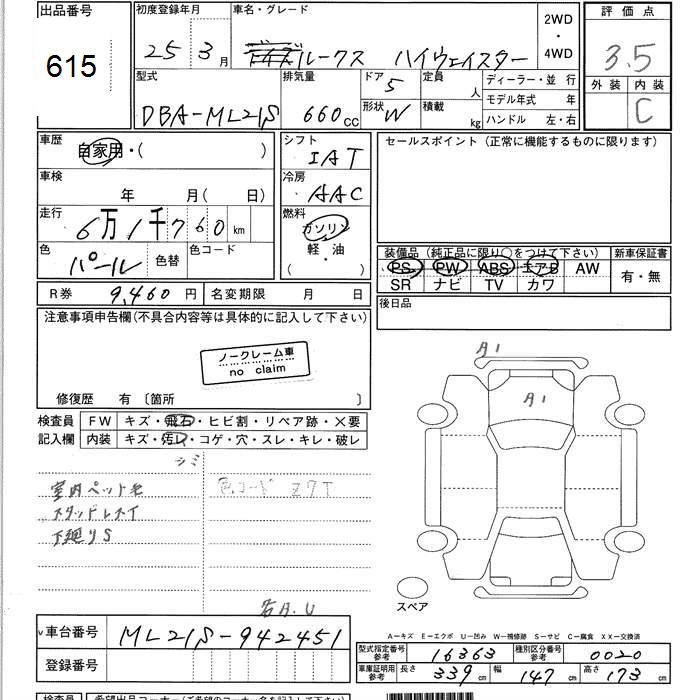 出品番号
615
初度登録年月
25年3月
車名・グレード
ルークス ハイウェイスター
2WD
・
4WD
評価点
3.5
外装 内装
C
型式
DBA-ML21S
排気量
660cc
ドア
5
形状
W
定員
人
積載
kg
ディーラー・並行
モデル年式 年
ハンドル 左・右
車歴
自家用・( )
シフト
IAT
セールスポイント(正常に機能するものに限ります)
車検
年 月(日)
冷房
AAC
走行
6万1千760km
燃料
ガソリン
軽・油
( ・ )
色
パール
色替
色コード
装備品(純正品に限り○をつけて下さい)
PS PW ABS エアB AW
SR ナビ TV カワ
新車保証書
有・無
R券 9,460円
名変期限 月 日
後日品
注意事項申告欄(不具合内容等は具体的に記入して下さい)
ノークレーム車
no claim
修復歴 有〔箇所 〕
検査員
記入欄
FW キズ・飛石・ヒビ割・リペア跡・×要
内装 キズ・汚レ・コゲ・穴・スレ・キレ・破レ
シミ
室内ペット毛
スタッドレスタイ
下廻りS
色コード Z7T
A1
A1
スペア
A-キズ E-エクボ U-凹み W-補修跡 S-サビ C-腐食 XX-交換済
車台番号
ML21S-942451
登録番号
型式指定番号
参考
16363
種別区分番号
参考
0020
車庫証明用
参考
長さ 339cm
幅 147cm
高さ 173cm
検査員
希望出品コーナー(ご希望のコーナー名を記入して下さい)